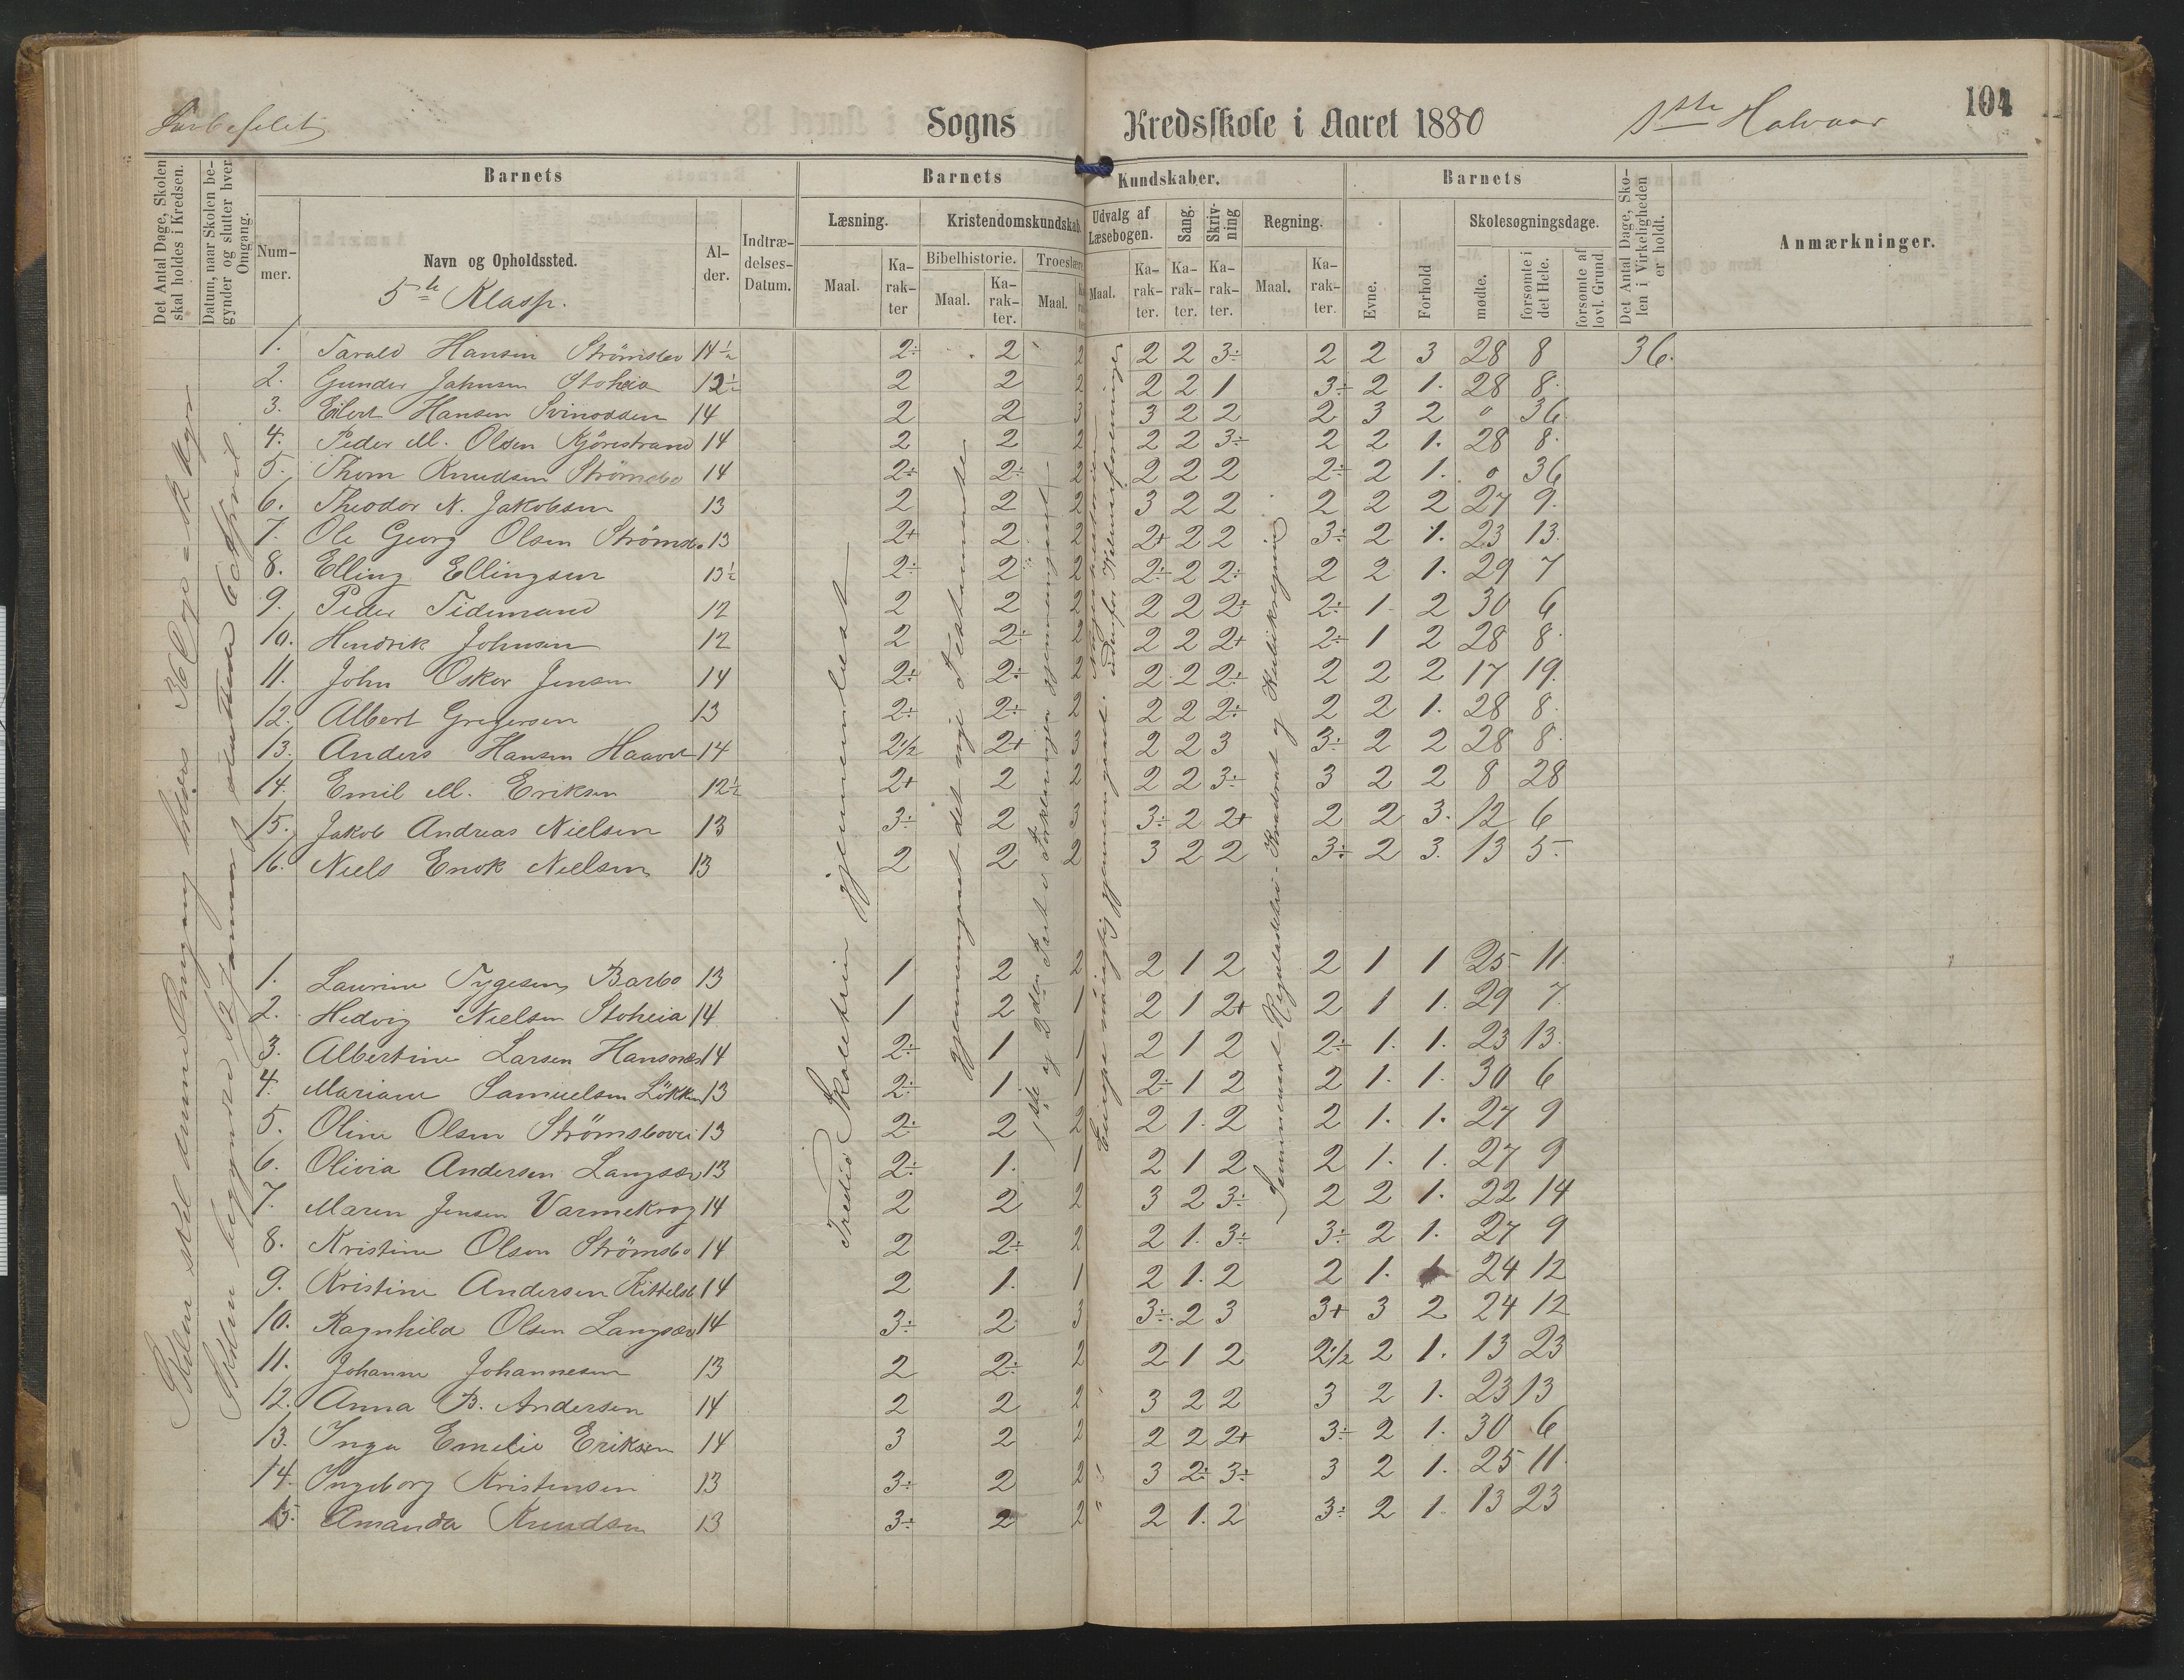 Barbofeldet Sogns Kredsskole i Aaret 1880 1ste Halvaar 104
Det Antal Dage, Skolen skal holdes i Kredsen.
Datum, naar Skolen begynder og slutter hver Omgang.
Barnets
Nummer.
Navn og Opholdssted.
5te Klasse.
Alder.
Indtrædelses-Datum.
Barnets Kundskaber.
Læsning. Kristendomskundskab. Udvalg af Læsebogen. Sang. Skrivning Regning.
Bibelhistorie. Troeslære.
Maal. Karakter Maal. Karakter. Maal. Karakter Maal. Karakter. Karakter. Karakter. Maal. Karakter.
Barnets
Evne. Forhold Skolesøgningsdage.
mødte. forsømte i det Hele. forsømte af lovl. Grund
Det Antal Dage, Skolen i Virkeligheden er holdt.
Anmærkninger.
1. Tarald Hansen Strømsbo 14½ 2÷ 2 2 2 2 3÷ 2 2 3 28 8 36.
2. Gunder Johnsen Stoheia 12½ 2 2 2 2 2 1 3÷ 2 1. 28 8.
3. Eilert Hansen Svinodden 14 2 2 3 3 2 2 2 3 2 0 36.
4. Peder M. Olsen Kjörestrand 14 2 2 2 2 2 3÷ 2 2 1. 28 8.
5. Thom Knudsen Strömsbo 14 2÷ 2÷ 2 2 2 2 2÷ 2 1. 0 36
6. Theodor N. Jakobsen 13 2 2 2 3 2 2 2 2 2 27 9.
7. Ole Georg Olsen Strömsbo 13 2+ 2 2 2+ 2 2 3÷ 2 1. 23 13.
8. Elling Ellingsen 13½ 2÷ 2 2 2÷ 2 2÷ 2 2 1. 29 7
9. Peder Tidemand 12 2 2 2 2 2 2÷ 2÷ 1 2 30 6
10. Hendrik Johnsen 12 2 2÷ 2 2 2 2+ 2÷ 1 2 28 8.
11. John Oskar Jensen 14 2÷ 2÷ 2 2 2 2÷ 2 2 2 17 19.
12. Albert Gregersen 13 2÷ 2÷ 2 2 2 2÷ 2 2 1. 28 8.
13. Anders Hansen Haavet 14 2½ 2+ 3 2 2 3 3÷ 2 2 28 8.
14. Emil M. Eriksen 12½ 2+ 2 2 2 2 3÷ 3 2 2 8 28
15. Jakob Andreas Nielsen 13 3÷ 2 3 3÷ 2 2+ 2 2 3. 12 6
16. Niels Enok Nielsen 13 2 2 2 3 2 2 3÷ 2 3. 13 5.
1. Laurine Tygesen Barbo 13 1 2 2 2 1 2 2 1 1 25 11.
2. Hedvig Nielsen Stoheia 14 1 2 1 2 1 2+ 2 1 1. 29 7.
3. Albertine Larsen Hansnæs 14 2÷ 1 1 2 1 2 2÷ 1. 1. 23 13.
4. Mariane Samuelsen Lökken 13 2÷ 1 1 2÷ 1 2 2 1. 1. 30 6
5. Oline Olsen Strömsbovei 13 2÷ 2 2 2 1. 2 2 1. 1. 27 9
6. Olivia Andersen Langsæv 13 2÷ 1. 1 2 1 2 2 1. 1. 27 9
7. Maren Jensen Varmekrog 14 2 2 2 3 2 3÷ 2 2 1. 22 14
8. Kristine Olsen Strömsbo 14 2 2÷ 2 2 1. 3÷ 3÷ 2 1. 27 9
9. Kristine Andersen Kittelsb 14 2 1. 1 2 1. 2 2 1. 1 24 12
10. Ragnhild Olsen Langsæv 14 3÷ 2 3 3÷ 2 3 3+ 3 2 24 12
11. Johanne Johannesen 13 2 2÷ 2 2 1 2 2½ 2 1. 13 23
12. Anna B. Andersen 14 2 2 2 3 2 2 3 2 1. 23 13
13. Inga Emelie Eriksen 14 3 2 2 2 2 2+ 3÷ 2 1. 30 6
14. Ingeborg Kristensen 13 3÷ 2 2 3 2÷ 3÷ 3 2 1. 25 11.
15. Amanda Knudsen 13 3÷ 2 2 2 1. 2 3÷ 2 1. 13 23
Skolen skal denne Omgang holdes 36 Dage
Skolen begyndte 12 Januar sluttede 6 April
Tredie Skoletrin gjennemlæst
gjennemgaaet det nye Testamente
1ste og 2den Part i Forklaringen gjennemgaaet
Sammensat Reguladetri- Kvadrat og Kubikregning